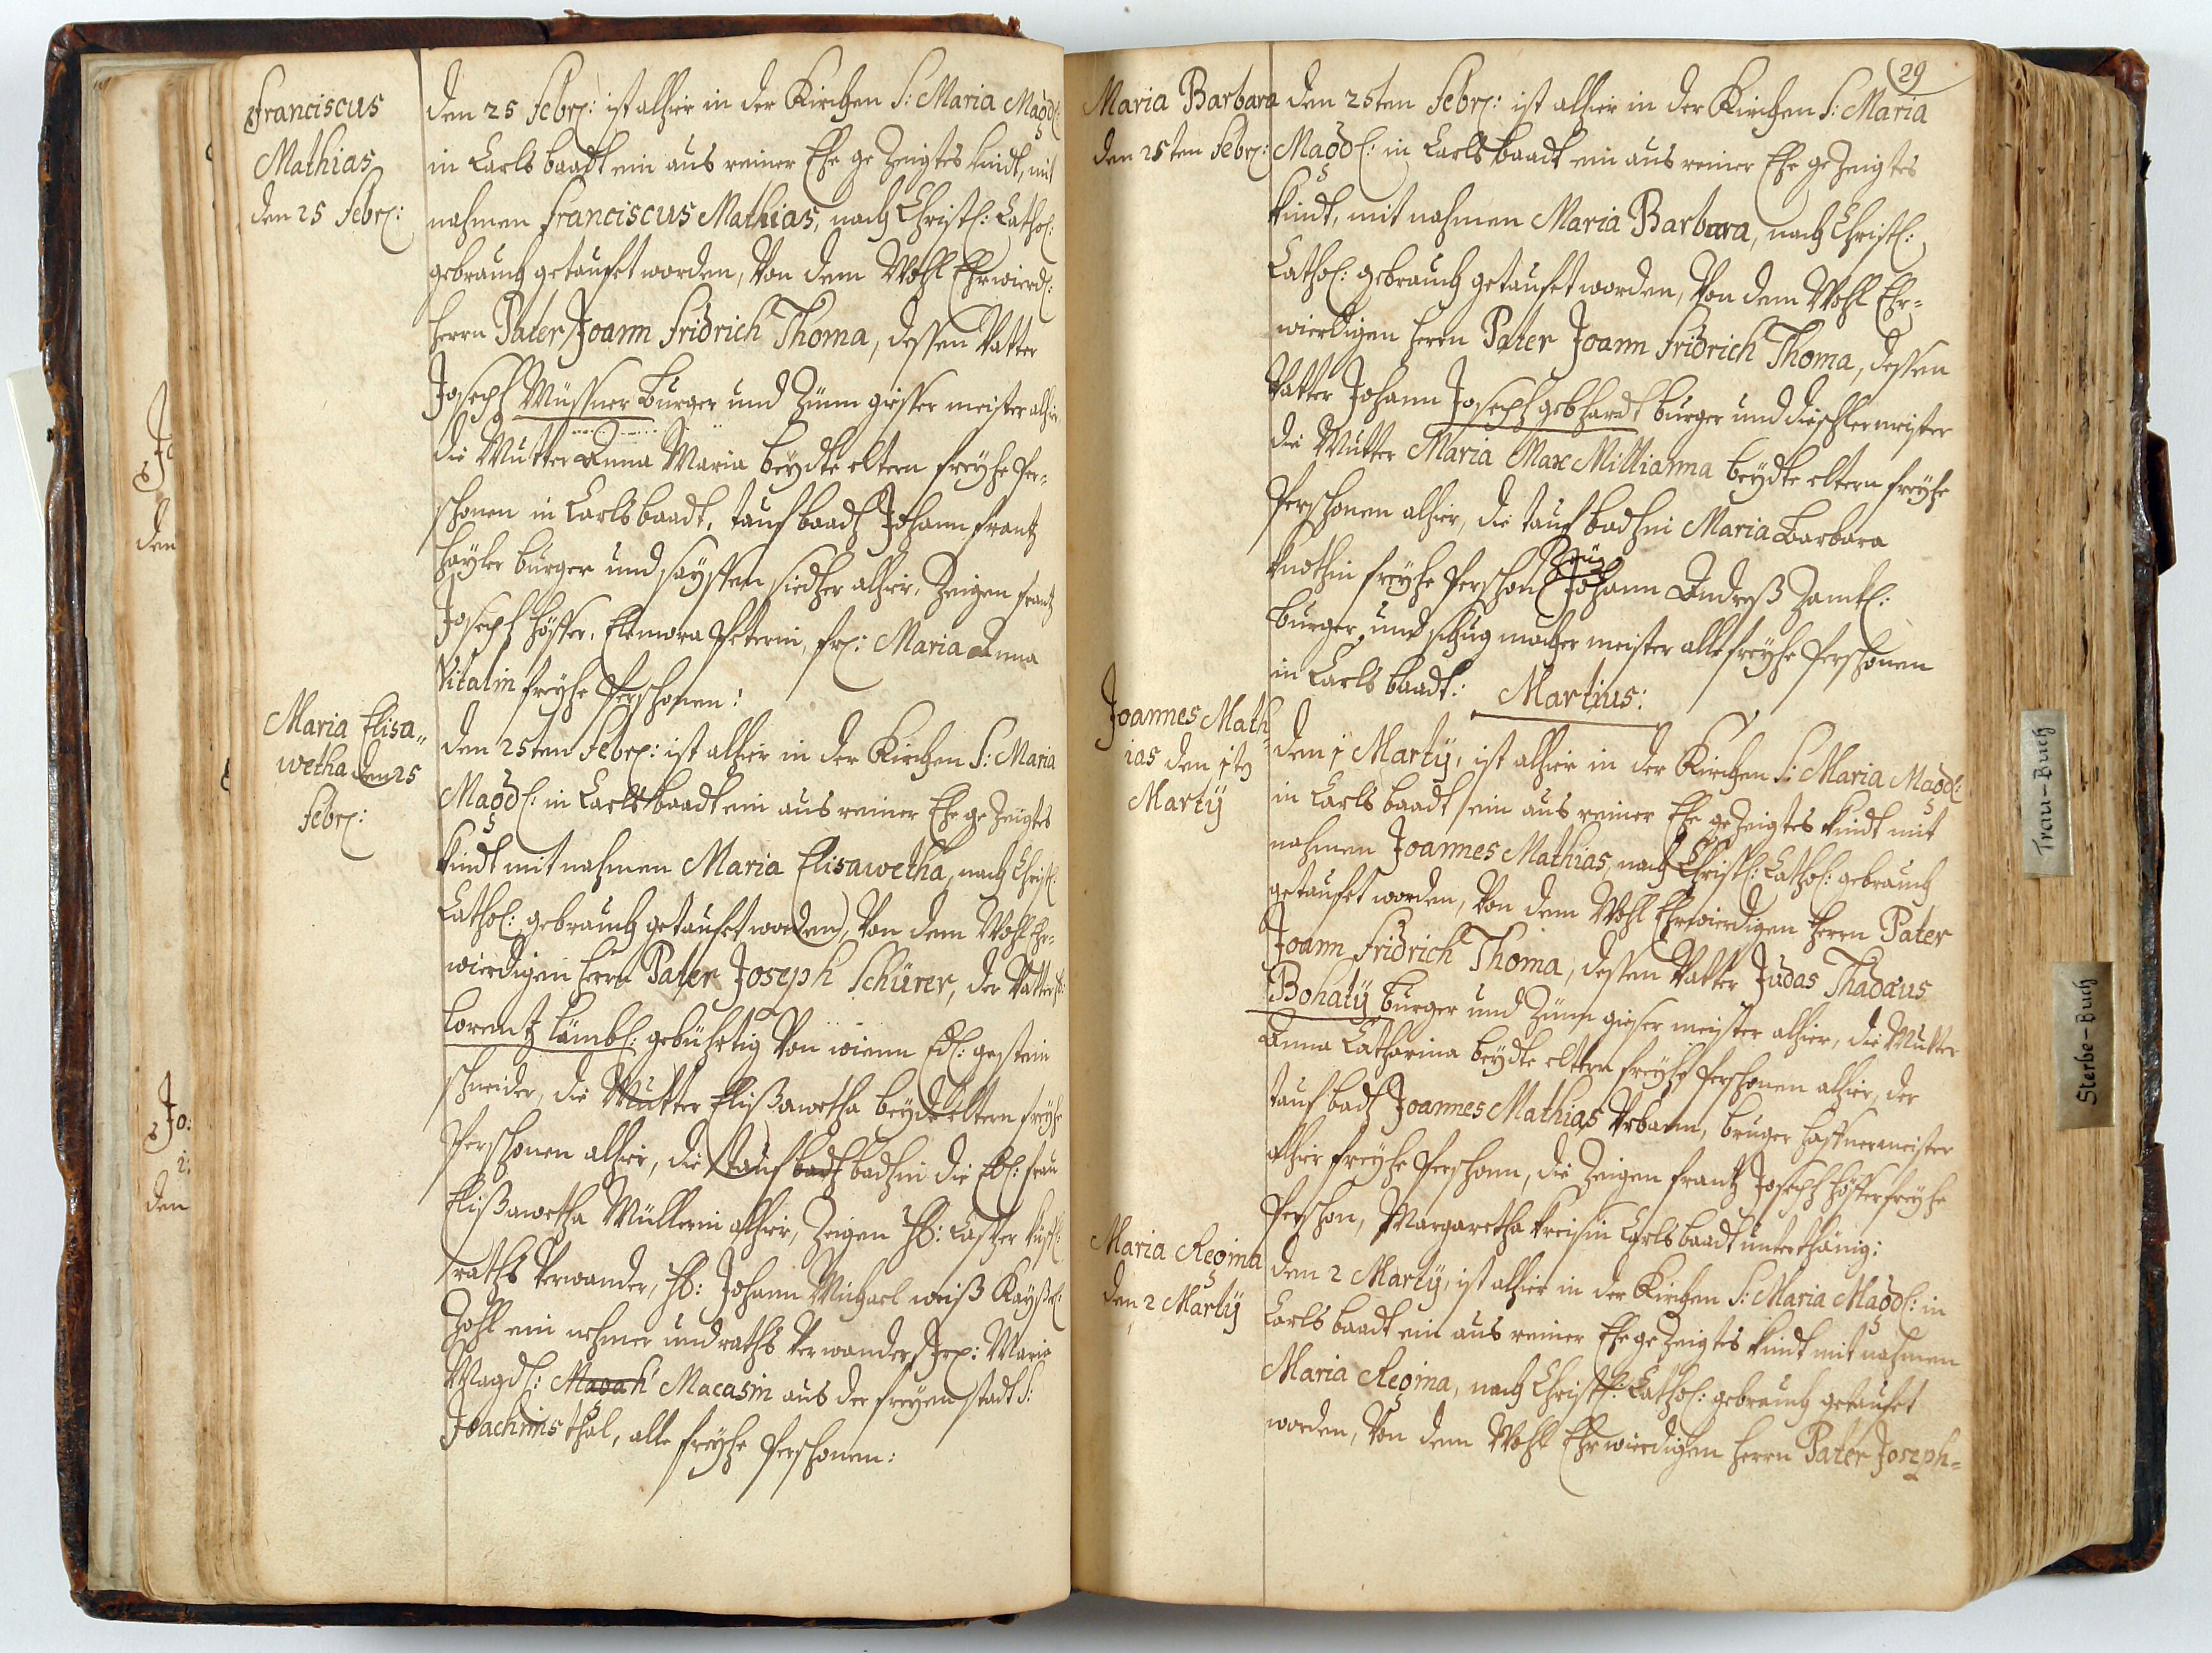 Franciscus
Mathias
den 25 Febr:
den 25 Febr: ist alhier in der Kirchen S: Maria Magd:
in Carlsbaadt ein aus reiner Ehe ge Zeigtes kindt, mit
nahmen Franciscus Mathias, nach Christl: Cathol:
gebrauch getaufet worden, Von dem Wohl Ehrwierd:
Herrn Pater Joann Fridrich Thoma, dessen Vatter
Joseph Müssner Burger und Zünn giesser meister alhier
die Mutter Anna Maria beydte eltern freyhe Per-
schonen in Carlsbaadt, tauf baadt Johann Frantz
Hayler burger und sayffen siedher alhier, Zeigen Frantz
Joseph Höffer, Elenora Peterin, fr: Maria Anna
Vitalin freyhe Perschonen:
Maria Elisa„
wetha den 25
Febr:
den 25ten Febr: ist alhier in der Kirchen S: Maria
Magdl: in Carlsbaadt ein aus reiner Ehe ge Zeigtes
kindt mit nahmen Maria Elisawetha, nach Christl:
Cathol: gebrauch getaufet worden, Von dem Wohl Ehr-
wierdigen Herrn Pater Joseph Schürer, der Vatter
Lorentz Lämbl: gebührtig Von wienn Edl: gestein
schneider, die Mutter Elißawetha beydte eltern freyhe
Perschonen alhier, die tauf badt badhin die Edl: Frau
Elißawetha Müllerin alhier, Zeigen H:
raths Verwander, H: Johann Michael weiß Kayßl:
Zohl ein nehmer und raths Verwander, Maria
Magdl: Macasin aus der freyen stadt S:
Joachimsthal, alle freyhe Perschonen:
29
Maria Barbara
den 25ten Febr:
den 25ten Febr: ist alhier in der Kirchen S: Maria
Magdl: in Carlsbaadt ein aus reiner Ehe ge Zeigtes
kindt, mit nahmen Maria Barbara, nach Christl:
Cathol: gebrauch getaufet worden, Von dem Wohl Ehr-
wierdigen Herrn Pater Joann Fridrich Thoma, dessen
Vatter Johann Joseph gebhardt burger und dieschlermeister
die Mutter Maria Max Millianna beydte eltern freyhe
Perschonen alhier, die tauf badhin Maria Barbara
Knothin freyhe Perschon Zeüg Johann Andreß
Burger und schug macher meister alle freyhe Perschonen
in Carlsbaadt: Martius:
Joannes Math-
ias den 1ty
Martÿ
den 1 Martÿ, ist alhier in der Kirchen S: Maria Magdl:
in Carlsbaadt ein aus reiner Ehe ge Zeigtes kindt mit
nahmen Joannes Mathias, nach Christl: Cathol: gebrauch
getaufet worden, Von dem Wohl Ehrwierdigen Herrn Pater
Joann Fridrich Thoma, dessen Vatter Judas Thadaus
Bohatÿ burger und Zünn gieser meister alhier, die Mutter
Anna Catharina beydte eltern freyhe Perschonen alhier, der
tauf badt Joannes Mathias Vrbann, bruger Haffnermeister
alhier freyhe Perschonn, die Zeigen Frantz Joseph Höffer freyhe
Perschon, Margaretha Carlsbaadt unterthänig:
Maria Regina
den 2 Martÿ
den 2 Martÿ, ist alhier in der Kirchen S: Maria Magdl: in
Carlsbaadt ein aus reiner Ehe ge Zeigtes kindt mit nahmen
Maria Regina, nach Christl: Cathol: gebrauch getaufet
worden, Von dem Wohl Ehrwierdigen Herrn Pater Joseph-
Trau-Buch
Sterbe-Buch
Jo:
den